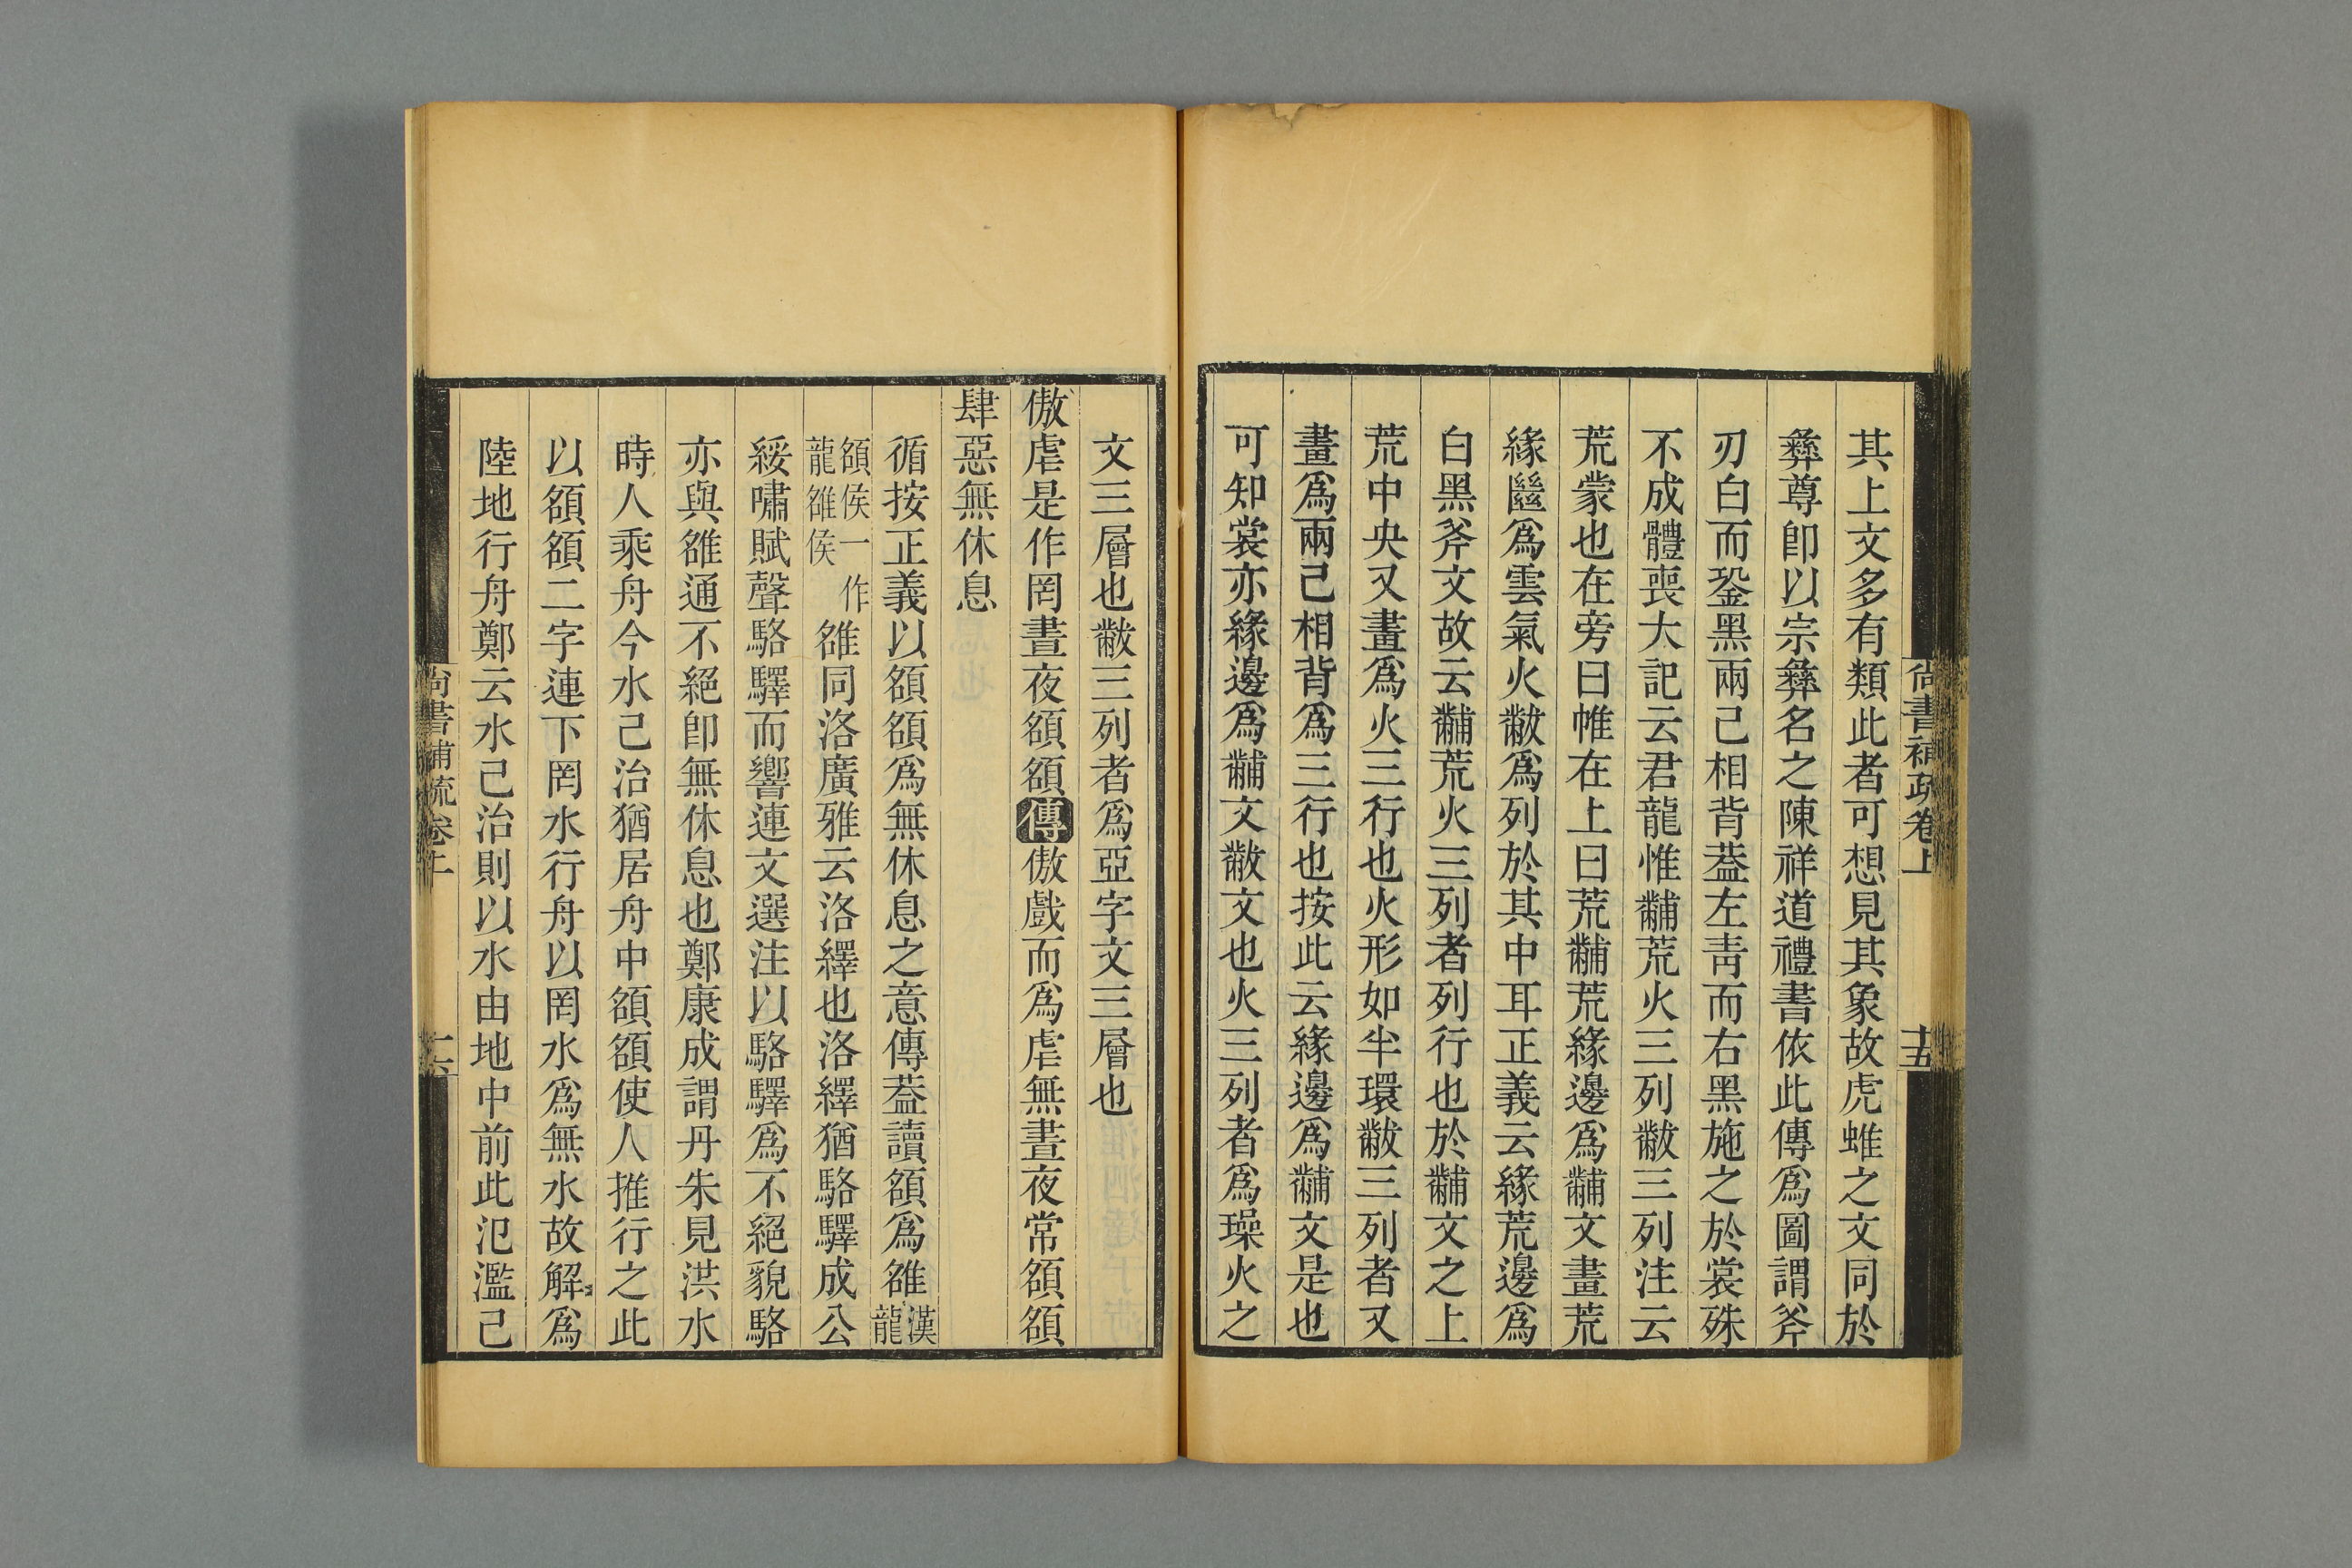 尚書補疏卷上
十五
其上文多有類此者可想見其象故虎蜼之文同於
彝尊卽以宗彝名之陳祥道禮書依此傳爲圖謂斧
刃白而銎黑兩己相背葢左靑而右黑施之於裳殊
不成體喪大記云君龍惟黼荒火三列黻三列注云
荒蒙也在旁曰帷在上曰荒黼荒緣邊爲黼文畫荒
緣匶爲雲氣火黻爲列於其中耳正義云緣荒邊爲
白黑斧文故云黼荒火三列者列行也於黼文之上
荒中央又畫爲火三行也火形如半環黻三列者又
畫爲兩己相背爲三行也按此云緣邊爲黼文是也
可知裳亦緣邊爲黼文黻文也火三列者爲璪火之
文三層也黻三列者爲亞字文三層也
傲虐是作罔晝夜頟頟傳傲戲而爲虐無晝夜常頟頟
肆惡無休息
循按正義以頟頟爲無休息之意傳葢讀頟爲雒漢
龍
頟侯一作
龍雒侯
雒同洛廣雅云洛繹也洛繹猶駱驛成公
綏嘯賦聲駱驛而響連文選注以駱驛爲不絕貌駱
亦與雒通不絕卽無休息也鄭康成謂丹朱見洪水
時人乘舟今水己治猶居舟中頟頟使人推行之此
以頟頟二字連下罔水行舟以罔水爲無水故解爲
陸地行舟鄭云水己治則以水由地中前此氾濫己
尚書補疏卷上
十六